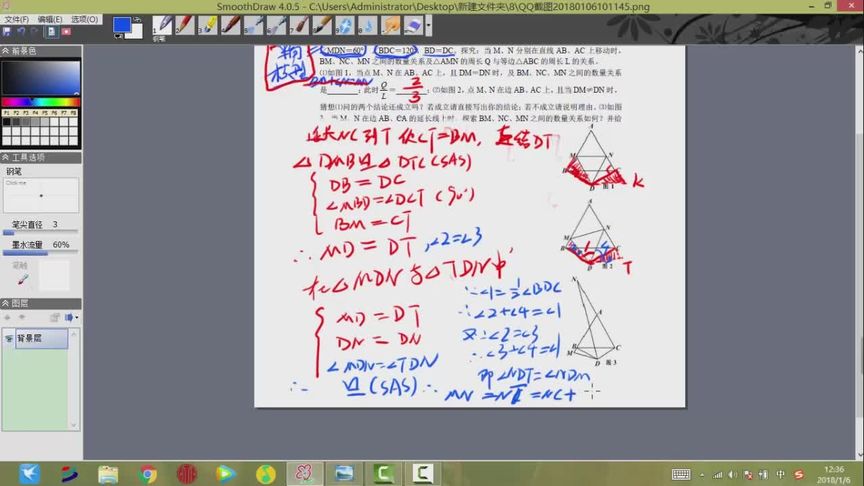 SmoothDraw 4.0.5 - C:\Users\Administrator\Desktop\新建文件夹\8\QQ截图20180106101145.png
文件(F) 编辑(E) 选项(O)
前景色
1 2 3 4 5 6 7 8 9 0
钢笔
P1 P2 P3 P4 P5 P6 P7 P8
工具选项
钢笔
Click me
笔尖直径 3
墨水流量 60%
笔触
图层
背景层
模型
∠MDN=60° ∠BDC=120° BD=DC. 探究:当 M、N 分别在直线 AB、AC 上移动时,
BM、NC、MN 之间的数量关系及△AMN 的周长 Q 与等边△ABC 的周长 L 的关系.
⑴如图 1,当点 M、N 在边 AB、AC 上,且 DM=DN 时,BM、NC、MN 之间的数量关系
是 ;此时 Q/L = 2/3 ;⑵如图 2,点 M、N 在边 AB、AC 上,且当 DM≠DN 时,
猜想⑴问的两个结论还成立吗?若成立请直接写出你的结论;若不成立请说明理由.⑶如图
3,当 M、N 在边 AB、CA 的延长线上时,探索 BM、NC、MN 之间的数量关系如何?并给
延长NC到T使CT=BM,连结DT
△DMB≌△DTC(SAS)
DB=DC
∠MBD=∠DCT(90°)
BM=CT
∴MD=DT,∠2=∠3
在△MDN与△TDN中
MD=DT
DN=DN
∠MDN=∠TDN
∴ ≌(SAS)
∵∠1=½∠BDC
∴∠2+∠4=∠1
又∵∠2=∠3
∴∠3+∠4=∠1
即∠NDT=∠NDM
∴MN=NT=NC+
A
M N
B C
D 图 1
K
A
N
M
B C
D 图 2
T
N
A
B C
M
D 图 3
12:36
2018/1/6